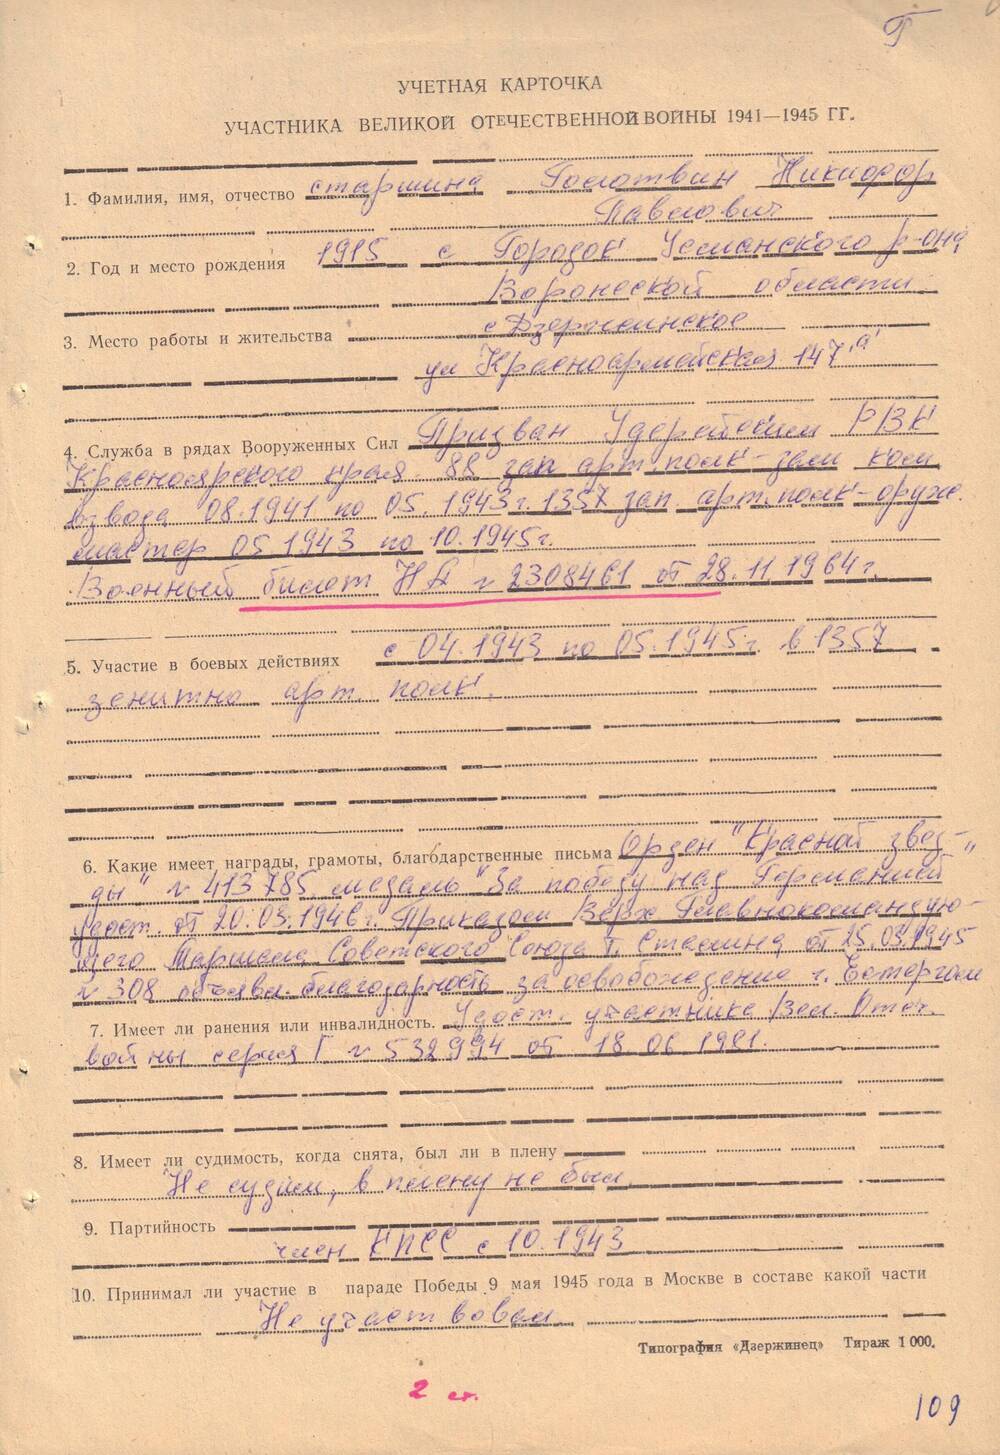 Г
УЧЕТНАЯ КАРТОЧКА
УЧАСТНИКА ВЕЛИКОЙ ОТЕЧЕСТВЕННОЙ ВОЙНЫ 1941—1945 ГГ.
1. Фамилия, имя, отчество старшина Голотвин Никифор
Павлович
2. Год и место рождения 1915 с Городок Усманского р-она
Воронеской области
3. Место работы и жительства с Дзержинское
ул Красноармейская 147 "а"
4. Служба в рядах Вооруженных Сил Призван Удерейским РВК
Красноярского края. 88 зап арт. полк - зам ком
взвода 08.1941 по 05.1943г. 1357 зап арт. полк - оруж.
мастер 05 1943 по 10.1945г.
Военный билет НД № 2308461 от 28.11.1964г.
5. Участие в боевых действиях с 04.1943 по 05.1945г. в 1357
зенитно арт. полк.
6. Какие имеет награды, грамоты, благодарственные письма Орден "Красной звез-
ды" № 413785, медаль "За победу над Германией"
удост. от 20.03.1946г. Приказом Верх Главнокомандую-
щего Маршала Советского Союза т. Сталина от 25.03.1945
№ 308 объявл. благодарность за освобождение г. Естергом
7. Имеет ли ранения или инвалидность. Удост. участника Вел. Отеч.
войны серия Г № 532994 от 18 06 1981.
8. Имеет ли судимость, когда снята, был ли в плену
Не судим, в плену не был
9. Партийность
член КПСС с 10.1943
10. Принимал ли участие в параде Победы 9 мая 1945 года в Москве в составе какой части
Не участвовал
Типография «Дзержинец» Тираж 1 000.
2 ст.
109